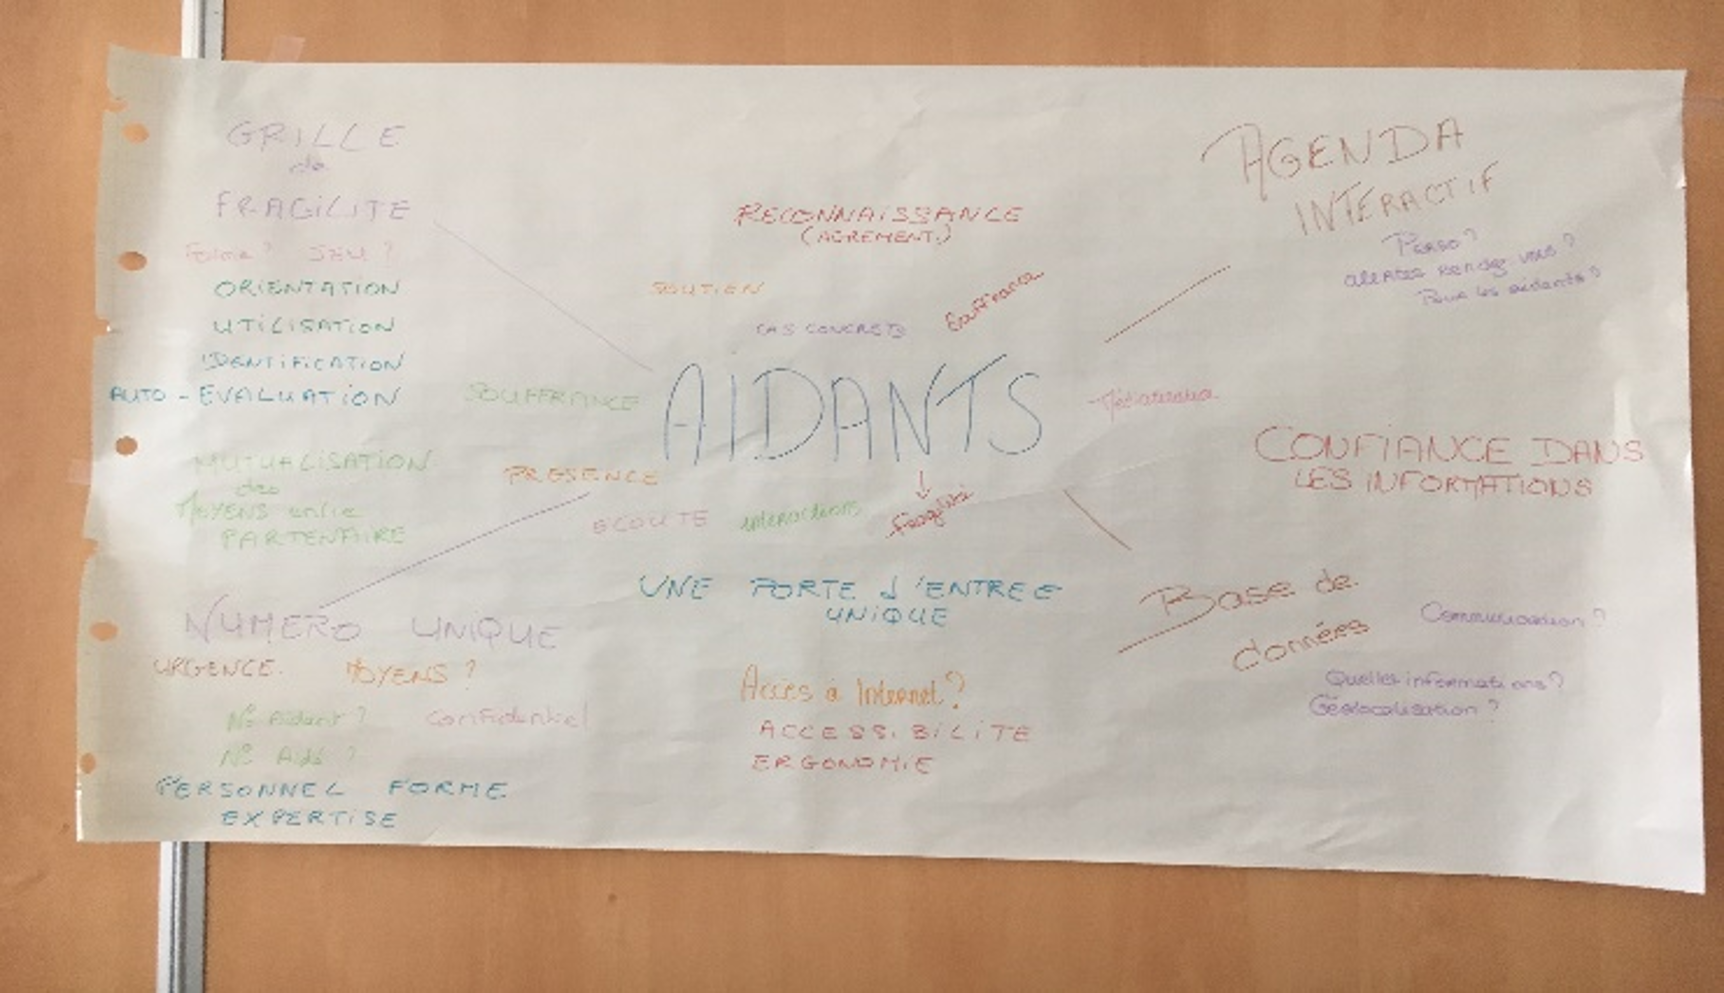 GRILLE
de
FRAGILITE
Forme ? SEUL ?
ORIENTATION
UTILISATION
IDENTIFICATION
AUTO - EVALUATION
MUTUALISATION
des
MOYENS entre
PARTENAIRE
NUMERO UNIQUE
URGENCE. MOYENS ?
N° Aidant ? confidentiel
N° Aidé ?
PERSONNEL FORME
EXPERTISE
RECONNAISSANCE
(AGREMENT.)
SOUTIEN
CAS CONCRETS
Souffrance
SOUFFRANCE
AIDANTS
PRESENCE
ECOUTE
interactions
UNE PORTE d'ENTREE
UNIQUE
Accès à Internet ?
ACCESSIBILITE
ERGONOMIE
AGENDA
INTERACTIF
PERSO ?
alertes Rendez vous ?
Pour les aidants ?
CONFIANCE DANS
LES INFORMATIONS
Base de
données
Communication ?
Quelles informations ?
Géolocalisation ?